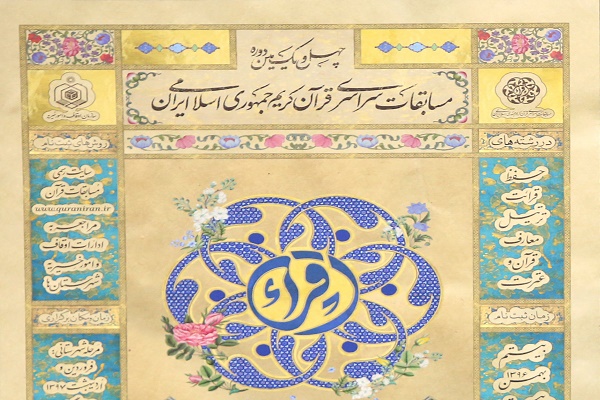 چهل و یکمین دوره
مسابقات سراسری قرآن کریم جمهوری اسلامی ایران
در رشته‌های
حفظ
قرائت
ترتیل
معارف
قرآن و
عترت
زمان ثبت نام
بیستم
بهمن
۱۳۹۶
روش‌های ثبت نام
سایت رسمی
مسابقات قرآن
www.quraniran.ir
مراجعه به
ادارات اوقاف
و امور خیریه
شهرستان‌ها
زمان و مکان برگزاری
مرحله شهرستانی:
فروردین و
اردیبهشت ۱۳۹۷
اقراء